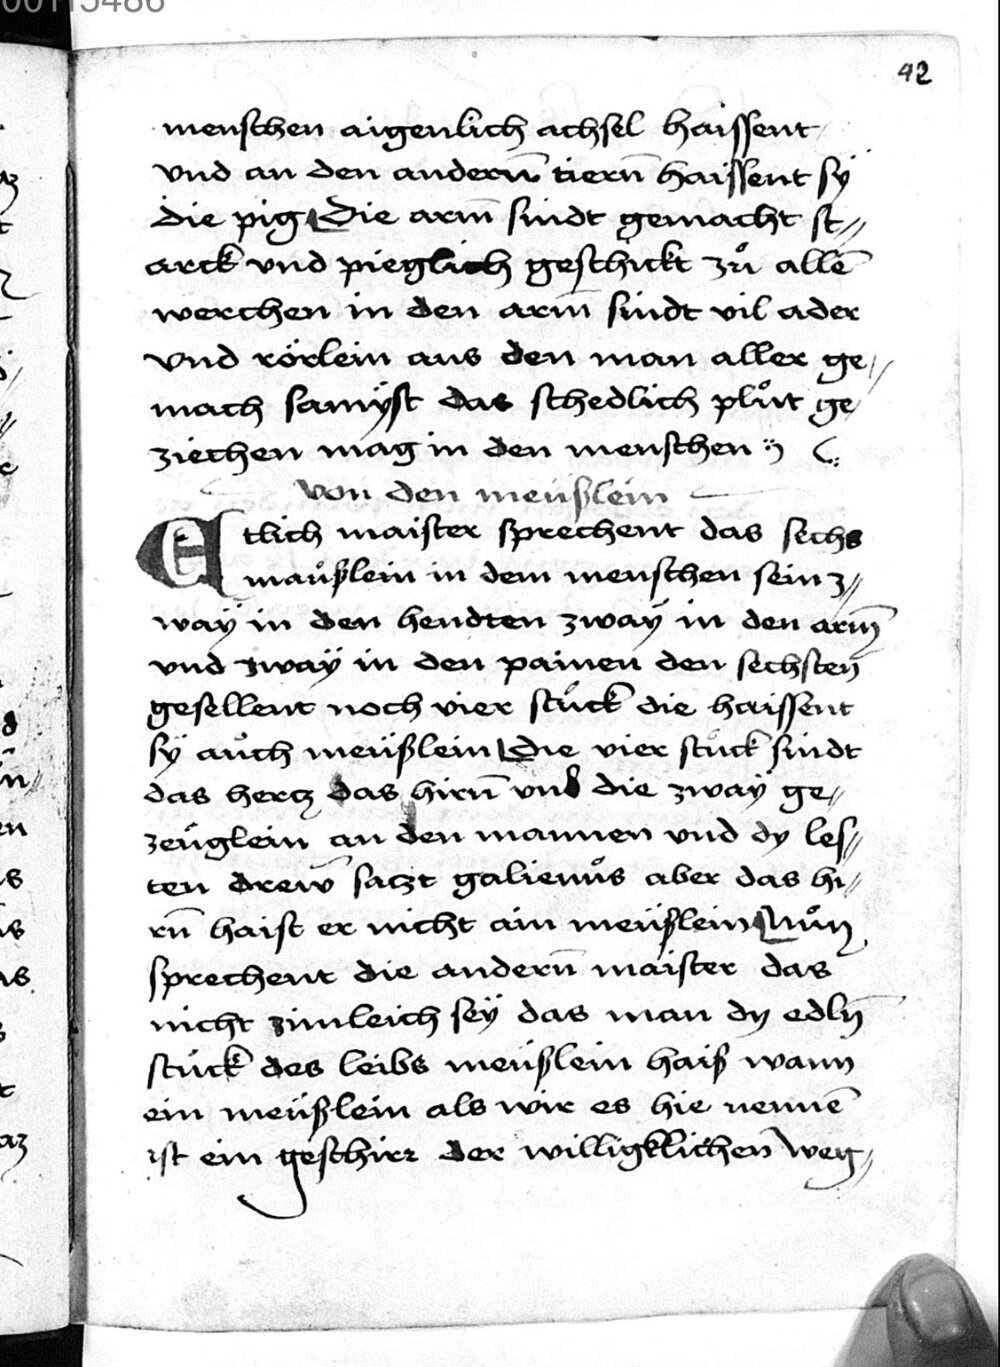 42
menschen aigenlich achsel haissent
vnd an den anderñ tierñ haissent sÿ
die pig Die arm̄ sindt gemacht st//
arck vnd pieglich geschickt zuͦ allē
werchen in den arm̄ sindt vil ader
vnd rörlein aus den man aller ge//
mach samÿst das schedlich pluͦt ge/
ziechen mag in den menschen
von den meüßlein
Etlich maister sprechent das sechs
mauͤßlein in dem menschen sein z//
waÿ in den hendten zwaÿ in den arm̄
vnd zwaÿ in den painen den sechsten
gesellent noch vier stuͤck die haissent
sÿ auͦch meüßlein Die vier stuͤck sindt
das hertz das hirñ vnd die zwaÿ ge//
zeuͤglein an den mannen vnd dy les//
ten drew̄ satzt galienuͦs aber das hi//
rñ haist er nicht ain meüßlein Nuͦn
sprechent die anderñ maister das
nicht zimleich seÿ das man dy edlñ
stuͤck des leibs meüßlein haiß wann
ein meüßlein als wir es hie nennē
ist ein geschirr der willigklichen weg//